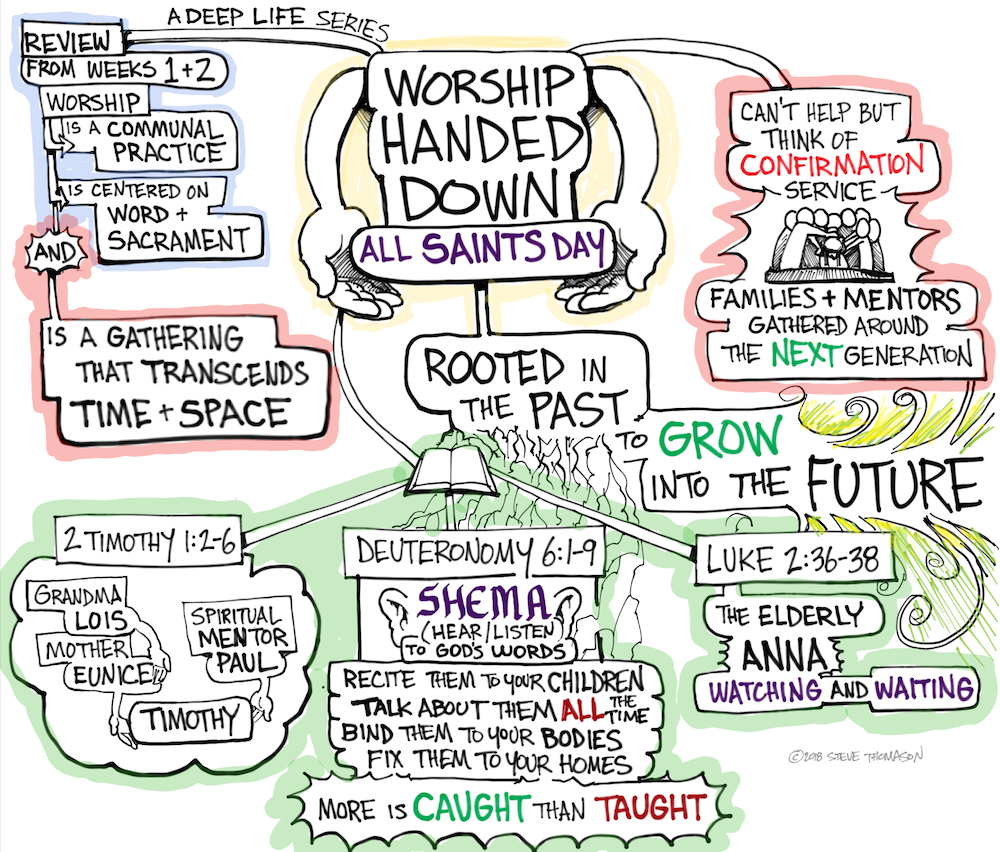 A DEEP LIFE SERIES
REVIEW
FROM WEEKS 1+2
WORSHIP
IS A COMMUNAL
PRACTICE
IS CENTERED ON
WORD +
SACRAMENT
AND
IS A GATHERING
THAT TRANSCENDS
TIME + SPACE
WORSHIP
HANDED
DOWN
ALL SAINTS DAY
CAN'T HELP BUT
THINK OF
CONFIRMATION
SERVICE
FAMILIES + MENTORS
GATHERED AROUND
THE NEXT GENERATION
ROOTED IN
THE PAST
TO GROW
INTO THE FUTURE
2 TIMOTHY 1:2-6
GRANDMA
LOIS
MOTHER
EUNICE
SPIRITUAL
MENTOR
PAUL
TIMOTHY
DEUTERONOMY 6:1-9
SHEMA
(HEAR/LISTEN
TO GOD'S WORDS)
RECITE THEM TO YOUR CHILDREN
TALK ABOUT THEM ALL THE TIME
BIND THEM TO YOUR BODIES
FIX THEM TO YOUR HOMES
MORE IS CAUGHT THAN TAUGHT
LUKE 2:36-38
THE ELDERLY
ANNA
WATCHING AND WAITING
©2018 STEVE THOMASON